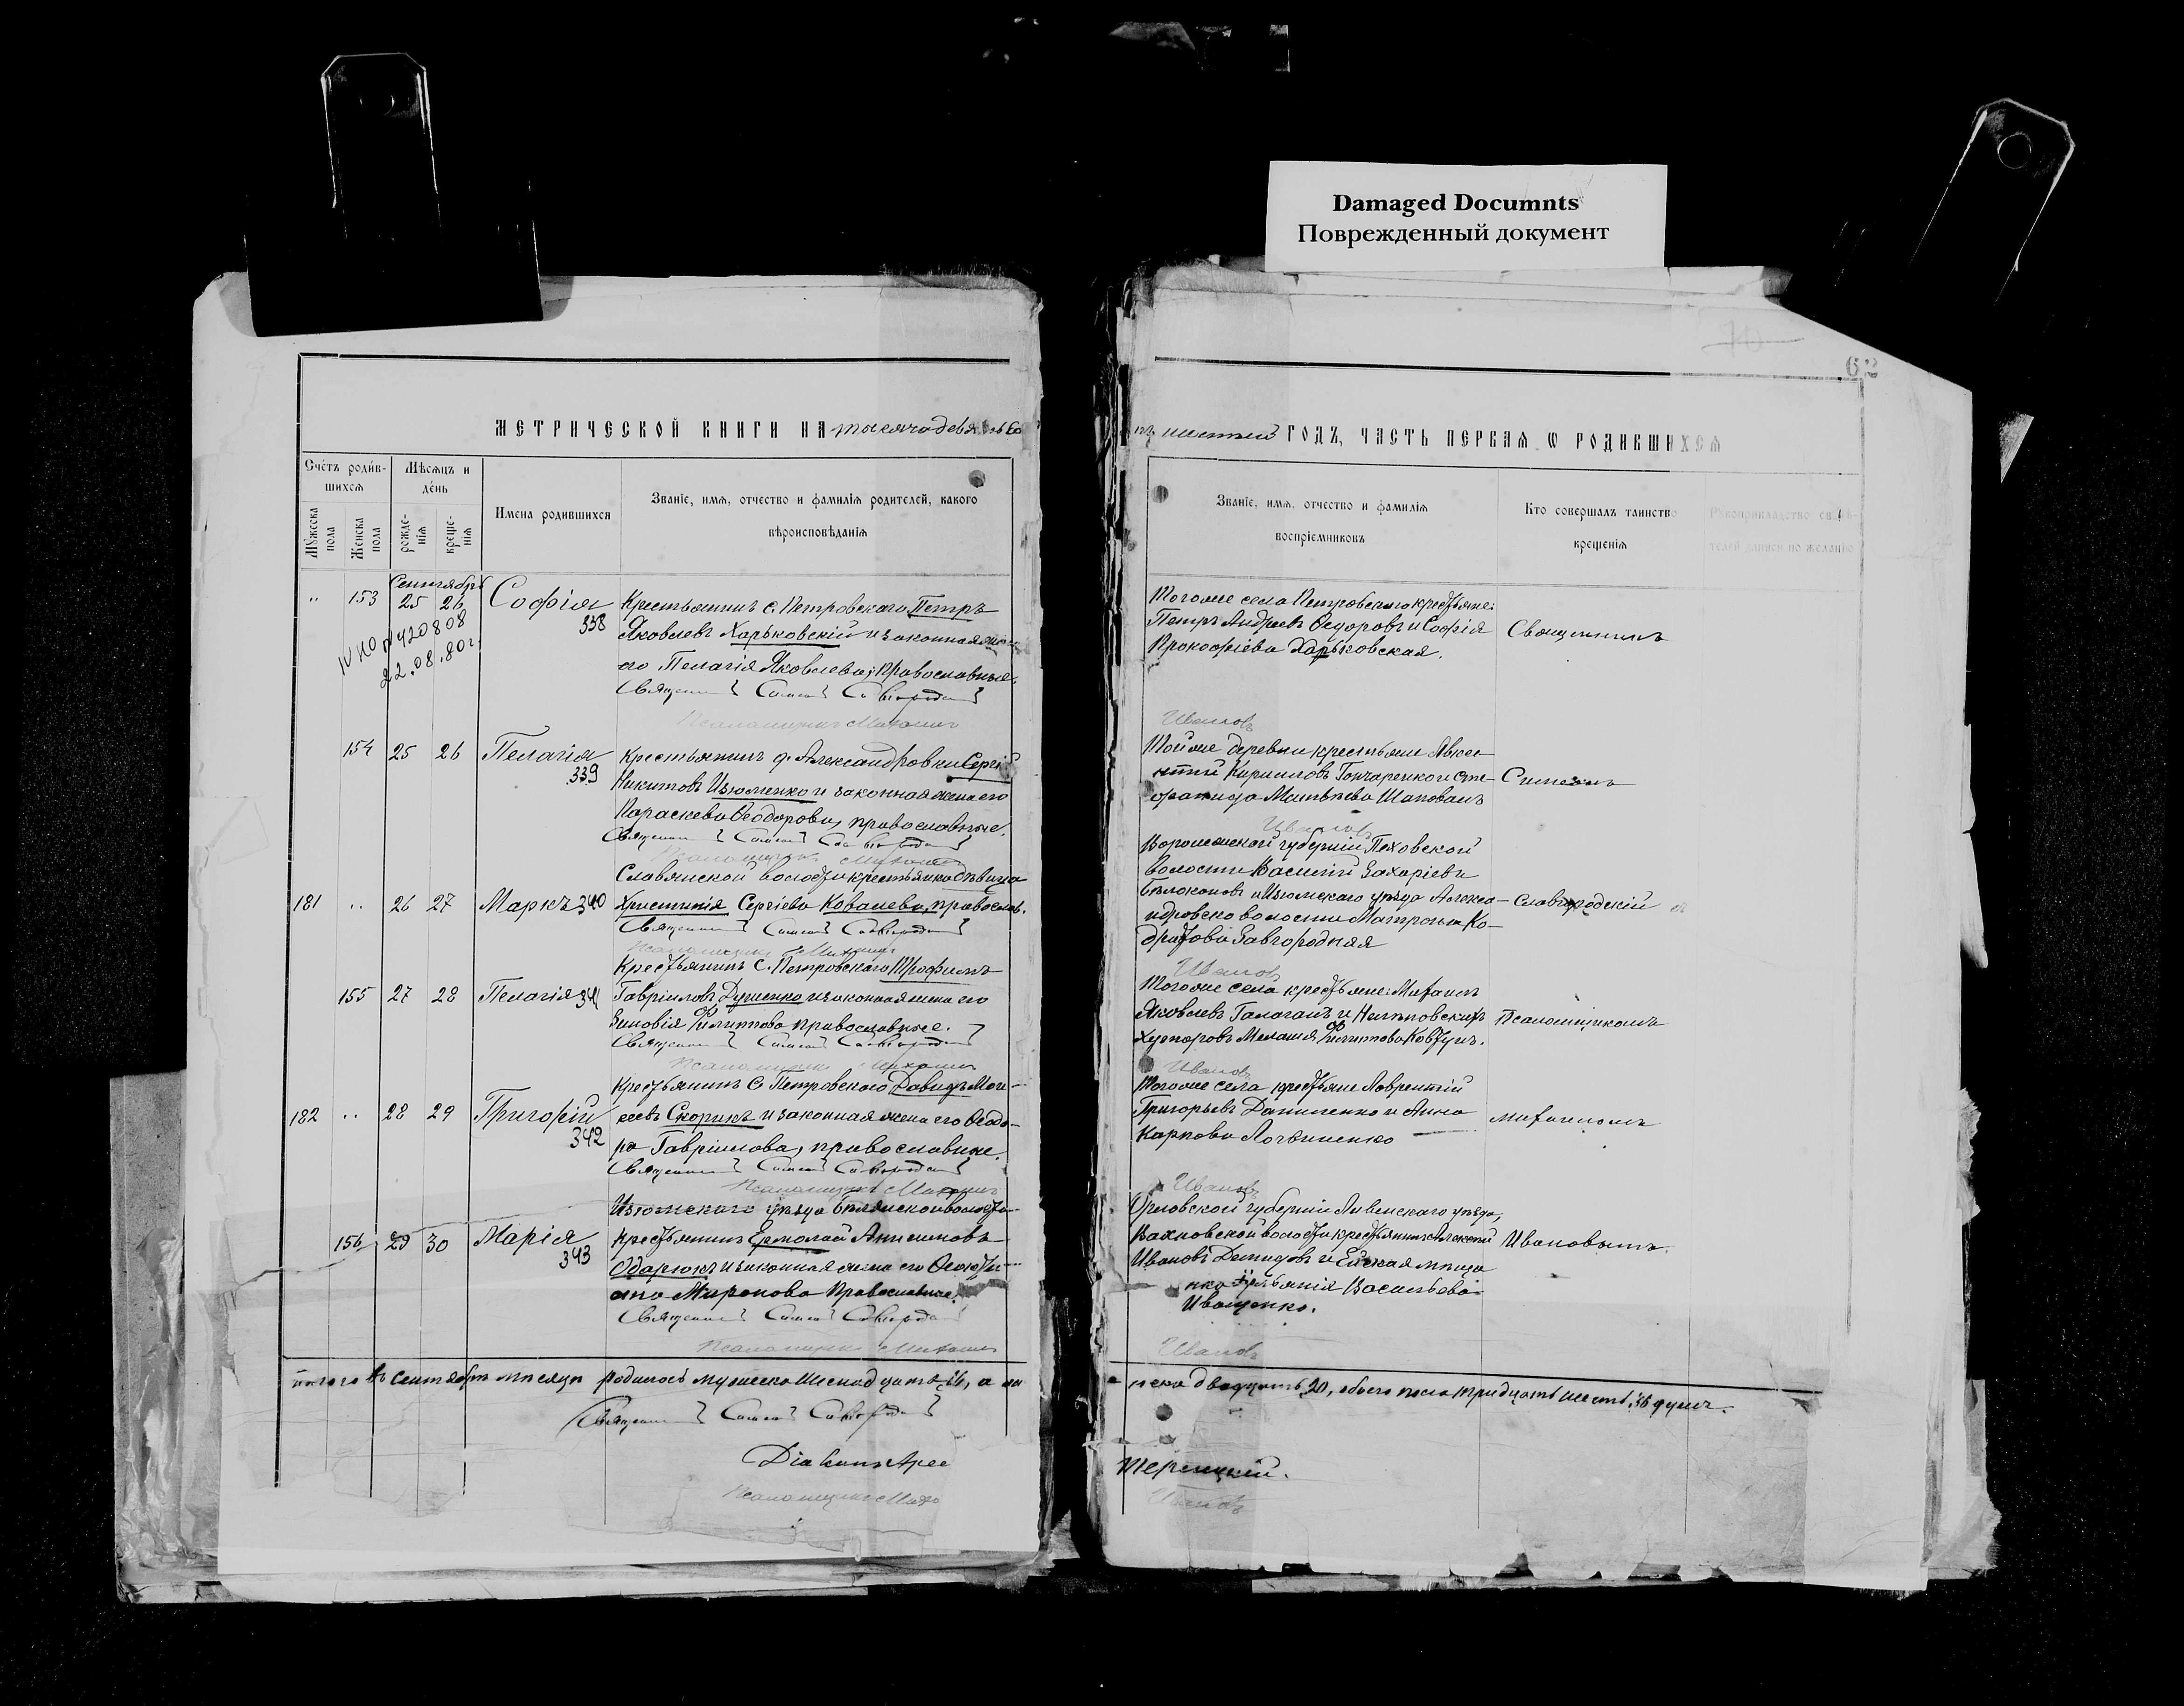 Damaged Documnts
Поврежденный документ
62
МЕТРИЧЕСКОЙ КНИГИ НА тысяча девятьсо
тъ шестый ГОДЪ, ЧАСТЬ ПЕРВАЯ Ѡ РОДИВШИХСЯ
Счетъ родив-
шихся
Мѣсяцъ и
день
Мужеска
пола
Женска
пола
рожде-
нія
креще-
нія
Имена родившихся
Званіе, имя, отчество и фамилія родителей, какого
вѣроисповѣданія
Званіе, имя, отчество и фамилія
воспріемниковъ
Кто совершалъ таинство
крещенія
Рукоприкладство свидѣ-
телей записи по желанію
Сентябрь
" 153 25 26 Софія 338
22.08.80г.
Крестьянинъ с. Петровскаго Петръ
Яковлевъ Харьковскій и законная жена
его Пелагія Яковлева, православные.
Священник Симеон
Псаломщикъ Михаилъ
Тогоже села Петровскаго крестьяне:
Петръ Андреевъ Ѳедоровъ и Софія
Прокофіева Харьковская.
Священникъ
Ивановъ
154 25 26 Пелагія 339
Крестьянинъ д. Александровки Сергій
Никитовъ Изюменко и законная жена его
Параскева Ѳеодорова, православные.
Священник Симеон
Псаломщикъ Михаилъ
Тойже деревни крестьяне Авксе-
нтій Кирилловъ Гончаренко и Сте-
фанида Матвѣева Шаповалъ
Симеонъ
Ивановъ
181 " 26 27 Маркъ 340
Славянской волости крестьянка дѣвица
Христинія Сергіева Ковалева, православ.
Священник Симеон
Псаломщикъ Михаилъ
Воронежской губерніи Пеховской
волости Василій Захаріевъ
Бѣлоконовъ и Изюмскаго уѣзда Алекса-
ндровско волости Матрона Ко-
дратова Завгородняя
Славгородскій
Ивановъ
155 27 28 Пелагія 341
Крестьянинъ с. Петровскаго Трофимъ
Гавріиловъ Душенко и законная жена его
Зиновія Филиппова православные.
Священник Симеон
Псаломщикъ Михаилъ
Тогоже села крестьяне: Михаилъ
Яковлевъ Галаганъ и
Хуторовъ Мелашія Филиппова Ковтунъ.
Псаломщикомъ
Ивановъ
182 " 28 29 Григорій 342
Крестьянинъ с. Петровскаго Давидъ Мои-
сеевъ Скорикъ и законная жена его Ѳеодо-
ра Гавріилова, православные.
Священник Симеон
Псаломщикъ Михаилъ
Тогоже села крестьяне Лаврентій
Григорьевъ Даниленко и Анна
Карпова Логвиненко
Михаиломъ
Ивановъ
156 29 30 Марія 343
Изюмскаго уѣзда волости
крестьянинъ Ермолай Анисимовъ
Одарюкъ и законная жена его Ѳеокти-
ста Миронова православные.
Священник Симеон
Псаломщикъ Михаилъ
Орловской губерніи Ливенскаго уѣзда,
волости крестьянинъ Алексій
Ивановъ Демидовъ и Ейская мѣща
нка Васильева
Иващенко.
Ивановымъ.
Ивановъ
Итого въ сентябрѣ мѣсяцѣ родилось мужеска шестнадцать 16, а же
нска двадцать 20, обоего пола тридцать шесть 36 душъ.
Священник Симеон
Діаконъ
Терлецкій.
Псаломщикъ Миха
Ивановъ